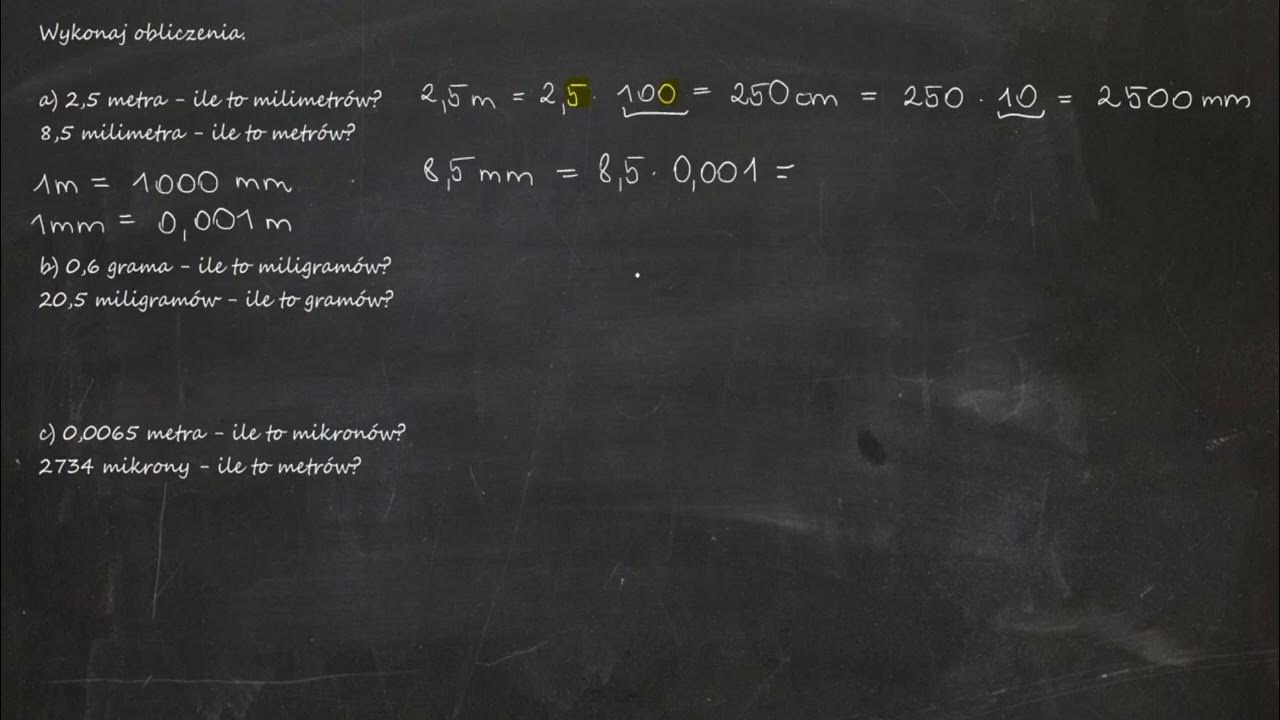 Wykonaj obliczenia.
a) 2,5 metra - ile to milimetrów?
2,5 m = 2,5 · 100 = 250 cm = 250 · 10 = 2500 mm
8,5 milimetra - ile to metrów?
1m = 1000 mm
8,5 mm = 8,5 · 0,001 =
1mm = 0,001 m
b) 0,6 grama - ile to miligramów?
20,5 miligramów - ile to gramów?
c) 0,0065 metra - ile to mikronów?
2734 mikrony - ile to metrów?